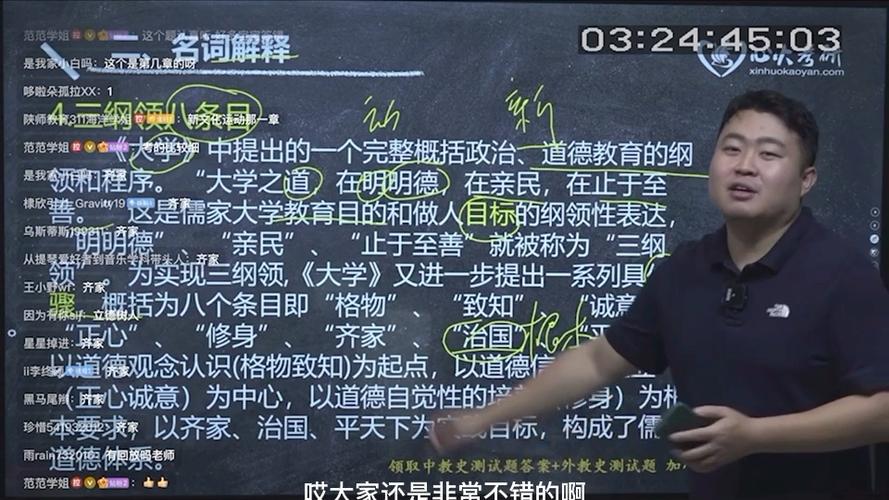 范范学姐
一、名词解释
03:24:45:03
心火考研
xinhuokaoyan.com
是我家小白吗：这个是第几章的呀
哆啦朵孤拉XX：1
4.三纲领八条目
动
新
新文化运动那一章
范范学姐 考的比较细
《大学》中提出的一个完整概括政治、道德教育的纲
领和程序。“大学之道，在明明德，在亲民，在止于至
善。”这是儒家大学教育目的和做人目标的纲领性表达，
Gravity19 齐家
乌斯蒂斯199317：齐家
“明明德”、“亲民”、“止于至善”就被称为“三纲
从提琴爱好者到音乐学科带头人：齐家
领”。为实现三纲领，《大学》又进一步提出一系列具
王小野wl：齐家
骤，概括为八个条目即“格物”、“致知”、“诚意
因为有你elf：立德树人
“正心”、“修身”、“齐家”、“治国”、“平
星星掉进：齐家
以道德观念认识(格物致知)为起点，以道德信
ii李终 齐家
（正心诚意）为中心，以道德自觉性的培 （修身）为根
黑马尾辫：齐家
本要求，以齐家、治国、平天下为实践目标，构成了儒
珍惜541932012：齐家
道德体系。
雨rain7320108：有回放吗老师
领取中教史测试题答案+外教史测试题 加
范范学姐
哎大家还是非常不错的啊